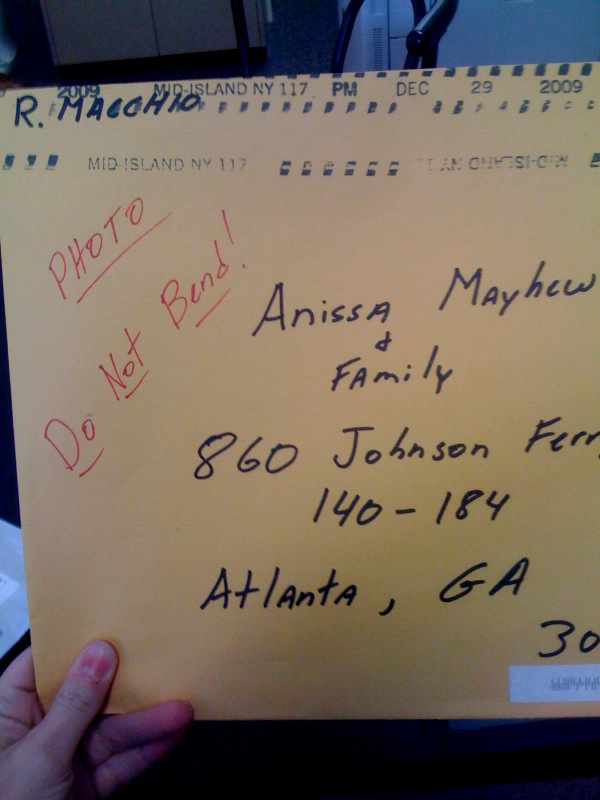 2009 MID-ISLAND NY 117 PM DEC 29 2009
R. MACCHIO
MID-ISLAND NY 117 MID-ISLAND NY
PHOTO
Do Not Bend!
Anissa Mayhew
&
Family
860 Johnson Ferr
140-184
Atlanta, GA
30